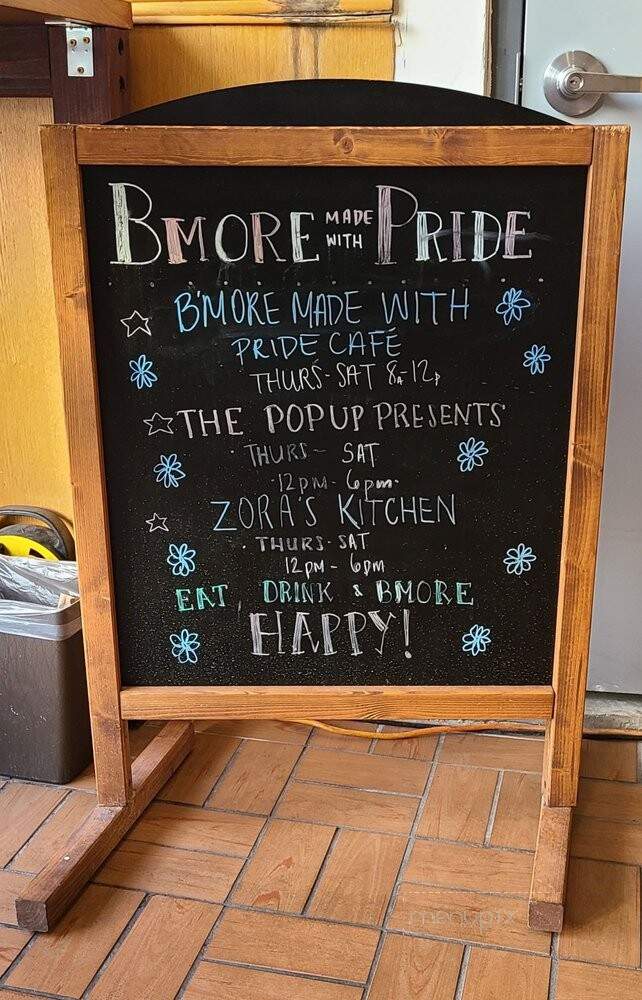 BMORE MADE WITH PRIDE
B'MORE MADE WITH
PRIDE CAFÉ
THURS-SAT 8A-12p
THE POPUP PRESENTS
THURS- SAT
12pm- 6pm.
ZORA'S KITCHEN
THURS-SAT
12pm - 6pm
EAT, DRINK & BMORE
HAPPY!
menupix